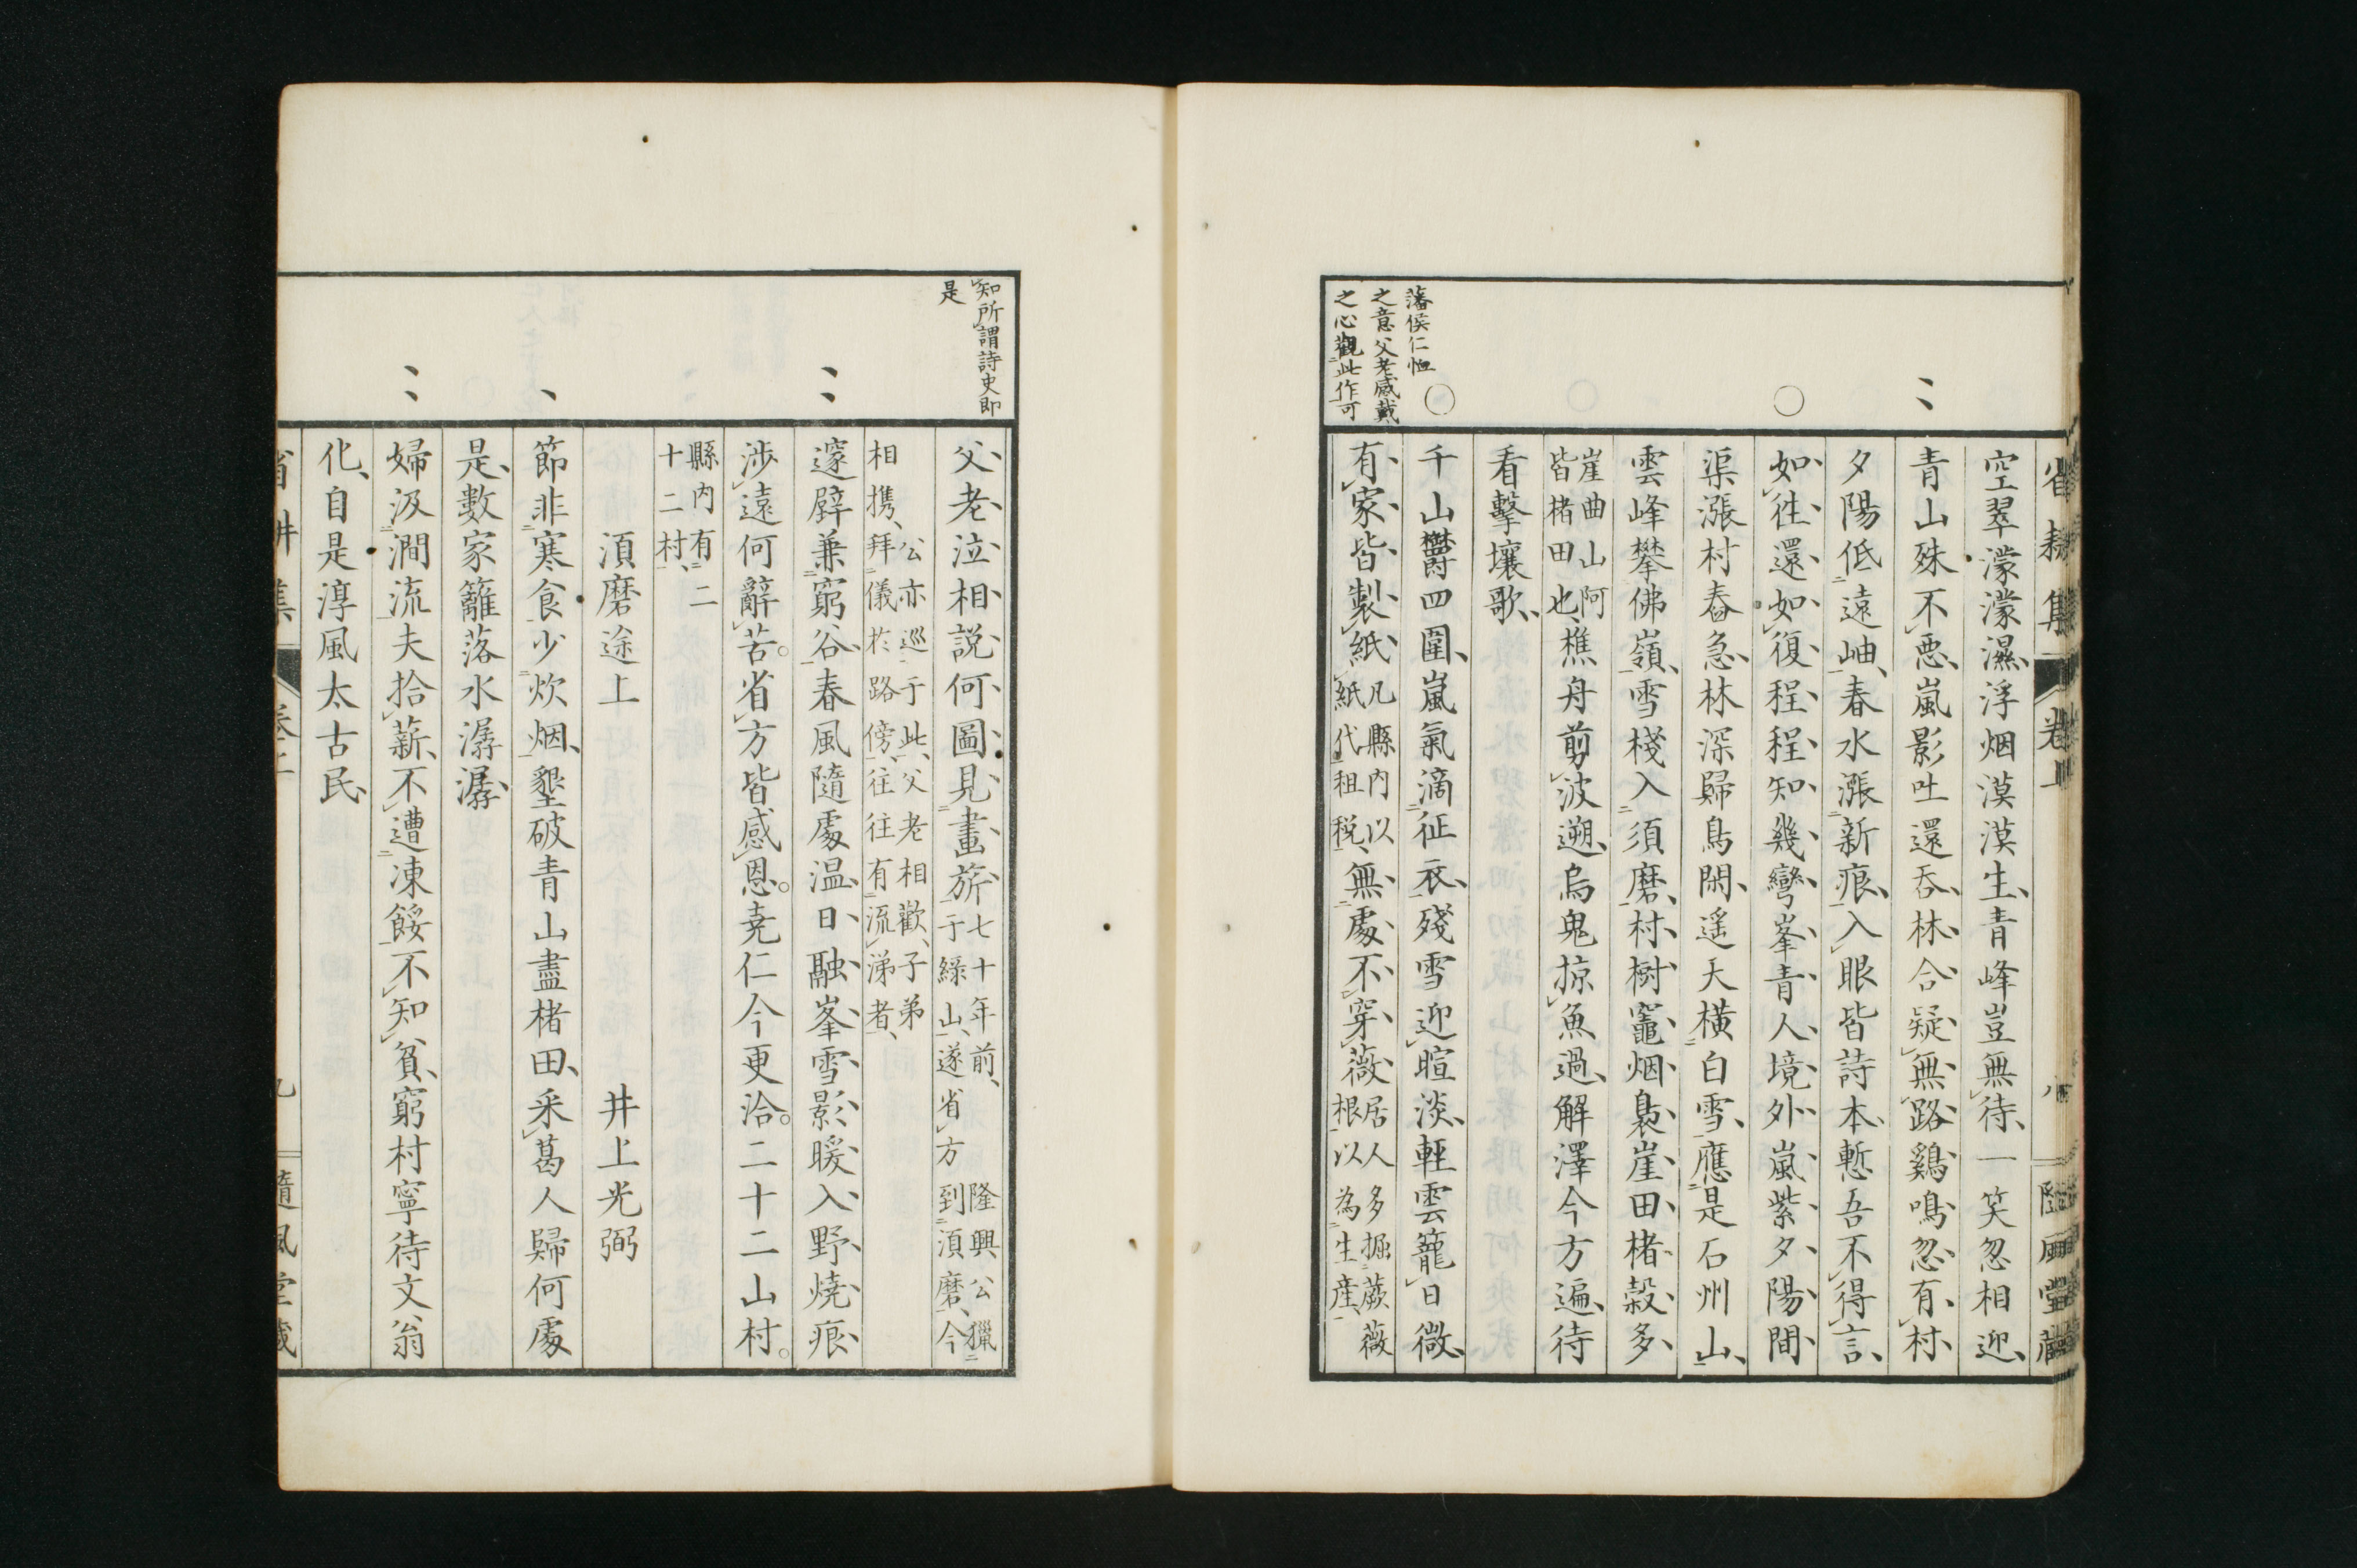 省耕集
卷上
八
隨風堂藏
空翠濛濛濕浮烟漠漠生青峰豈無待一笑忽相迎
青山殊不惡嵐影吐還吞林合疑無路鷄鳴忽有村
夕陽低遠岫春水漲新痕入眼皆詩本慙吾不得言
如往還如復程程知幾彎峯青人境外嵐紫夕陽間
渠漲村舂急林深歸鳥閑遥天橫白雪應是石州山
雲峰攀佛嶺雪棧入須磨村樹竈烟裊崖田楮穀多
崖曲山阿
皆楮田也
樵舟剪波遡烏鬼掠魚過解澤今方遍待
看擊壤歌
藩侯仁恤
之意父老感戴
之心觀此作可
千山欝四圍嵐氣滴征衣殘雪迎暄淡輕雲籠日微
有家皆製紙
凡縣內以
紙代租税
無處不穿薇
居人多掘蕨薇
根以為生産
知所謂詩史即
是
父老泣相説何圖見畫旂
七十年前隆興公獵
于綠山遂省方到湏磨今
公亦巡于此父老相歡子弟
相携拜儀於路傍往往有流涕者
邃辟兼窮谷春風隨處温日融峯雪影暖入野燒痕
涉遠何辭苦省方皆感恩堯仁今更洽二十二山村
縣内有二
十二村
湏磨途上
井上光弼
節非寒食少炊烟墾破青山盡楮田釆葛人歸何處
是數家籬落水潺潺
婦汲澗流夫拾薪不遭凍餒不知貧窮村寧待文翁
化自是淳風太古民
省耕集
卷上
九
隨風堂藏